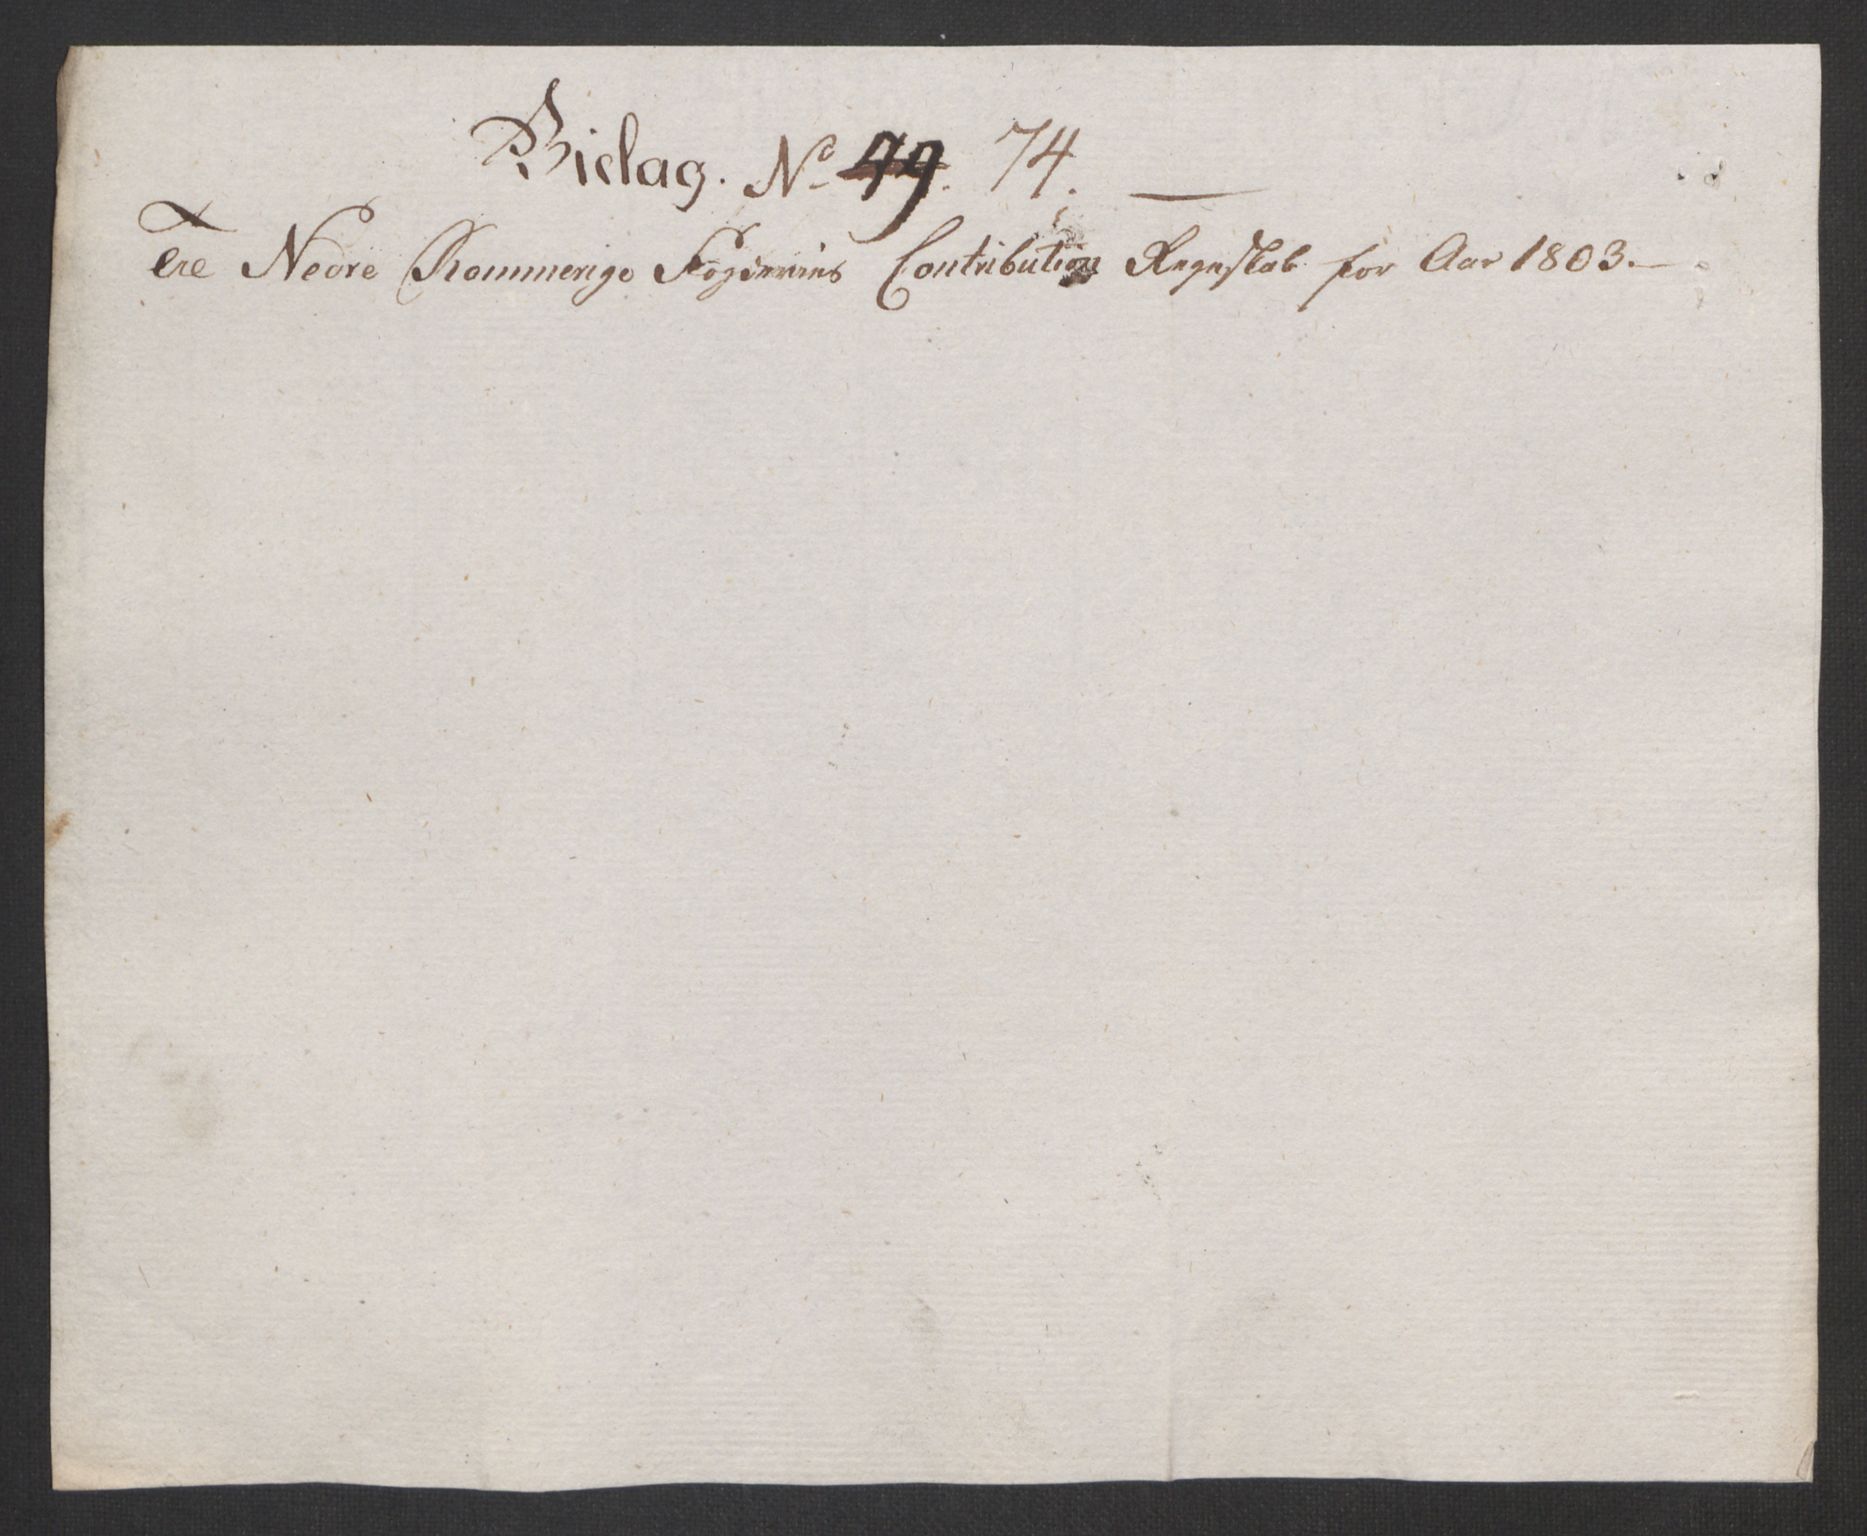 Bielag. No 79. 74.
Til Nedre Rommerige Fogderies Contribution Regnskab for Aar 1803.